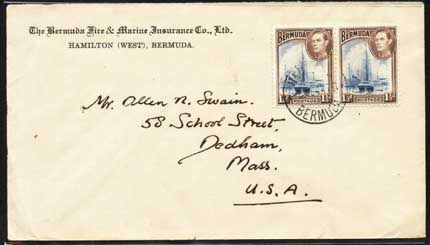 The Bermuda Fire & Marine Insurance Co., Ltd.
HAMILTON (WEST), BERMUDA.
BERMUDA BERMUDA
POSTAGE POSTAGE
BERMUDA
Mr. Allen N. Swain.
58 School Street,
Dedham,
Mass.
U.S.A.